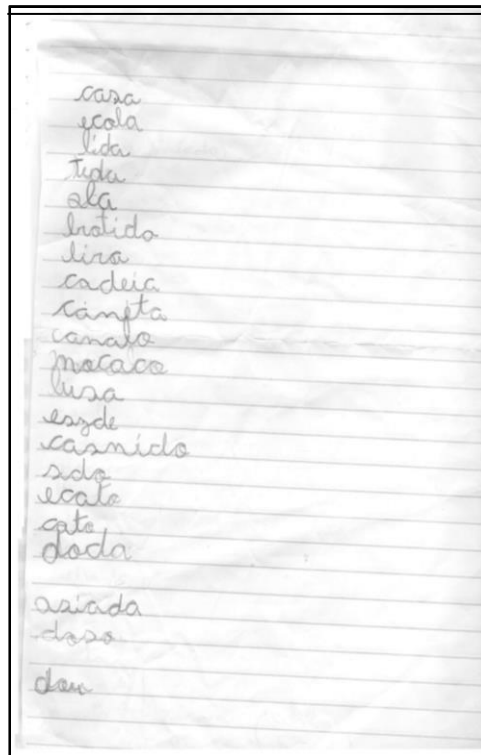 casa
ecola
lida
teda
ala
batido
lira
cadeia
canpta
canalo
macaco
lusa
eszde
casnido
sdo
ecato
gato
doda
asiada
doso
dou